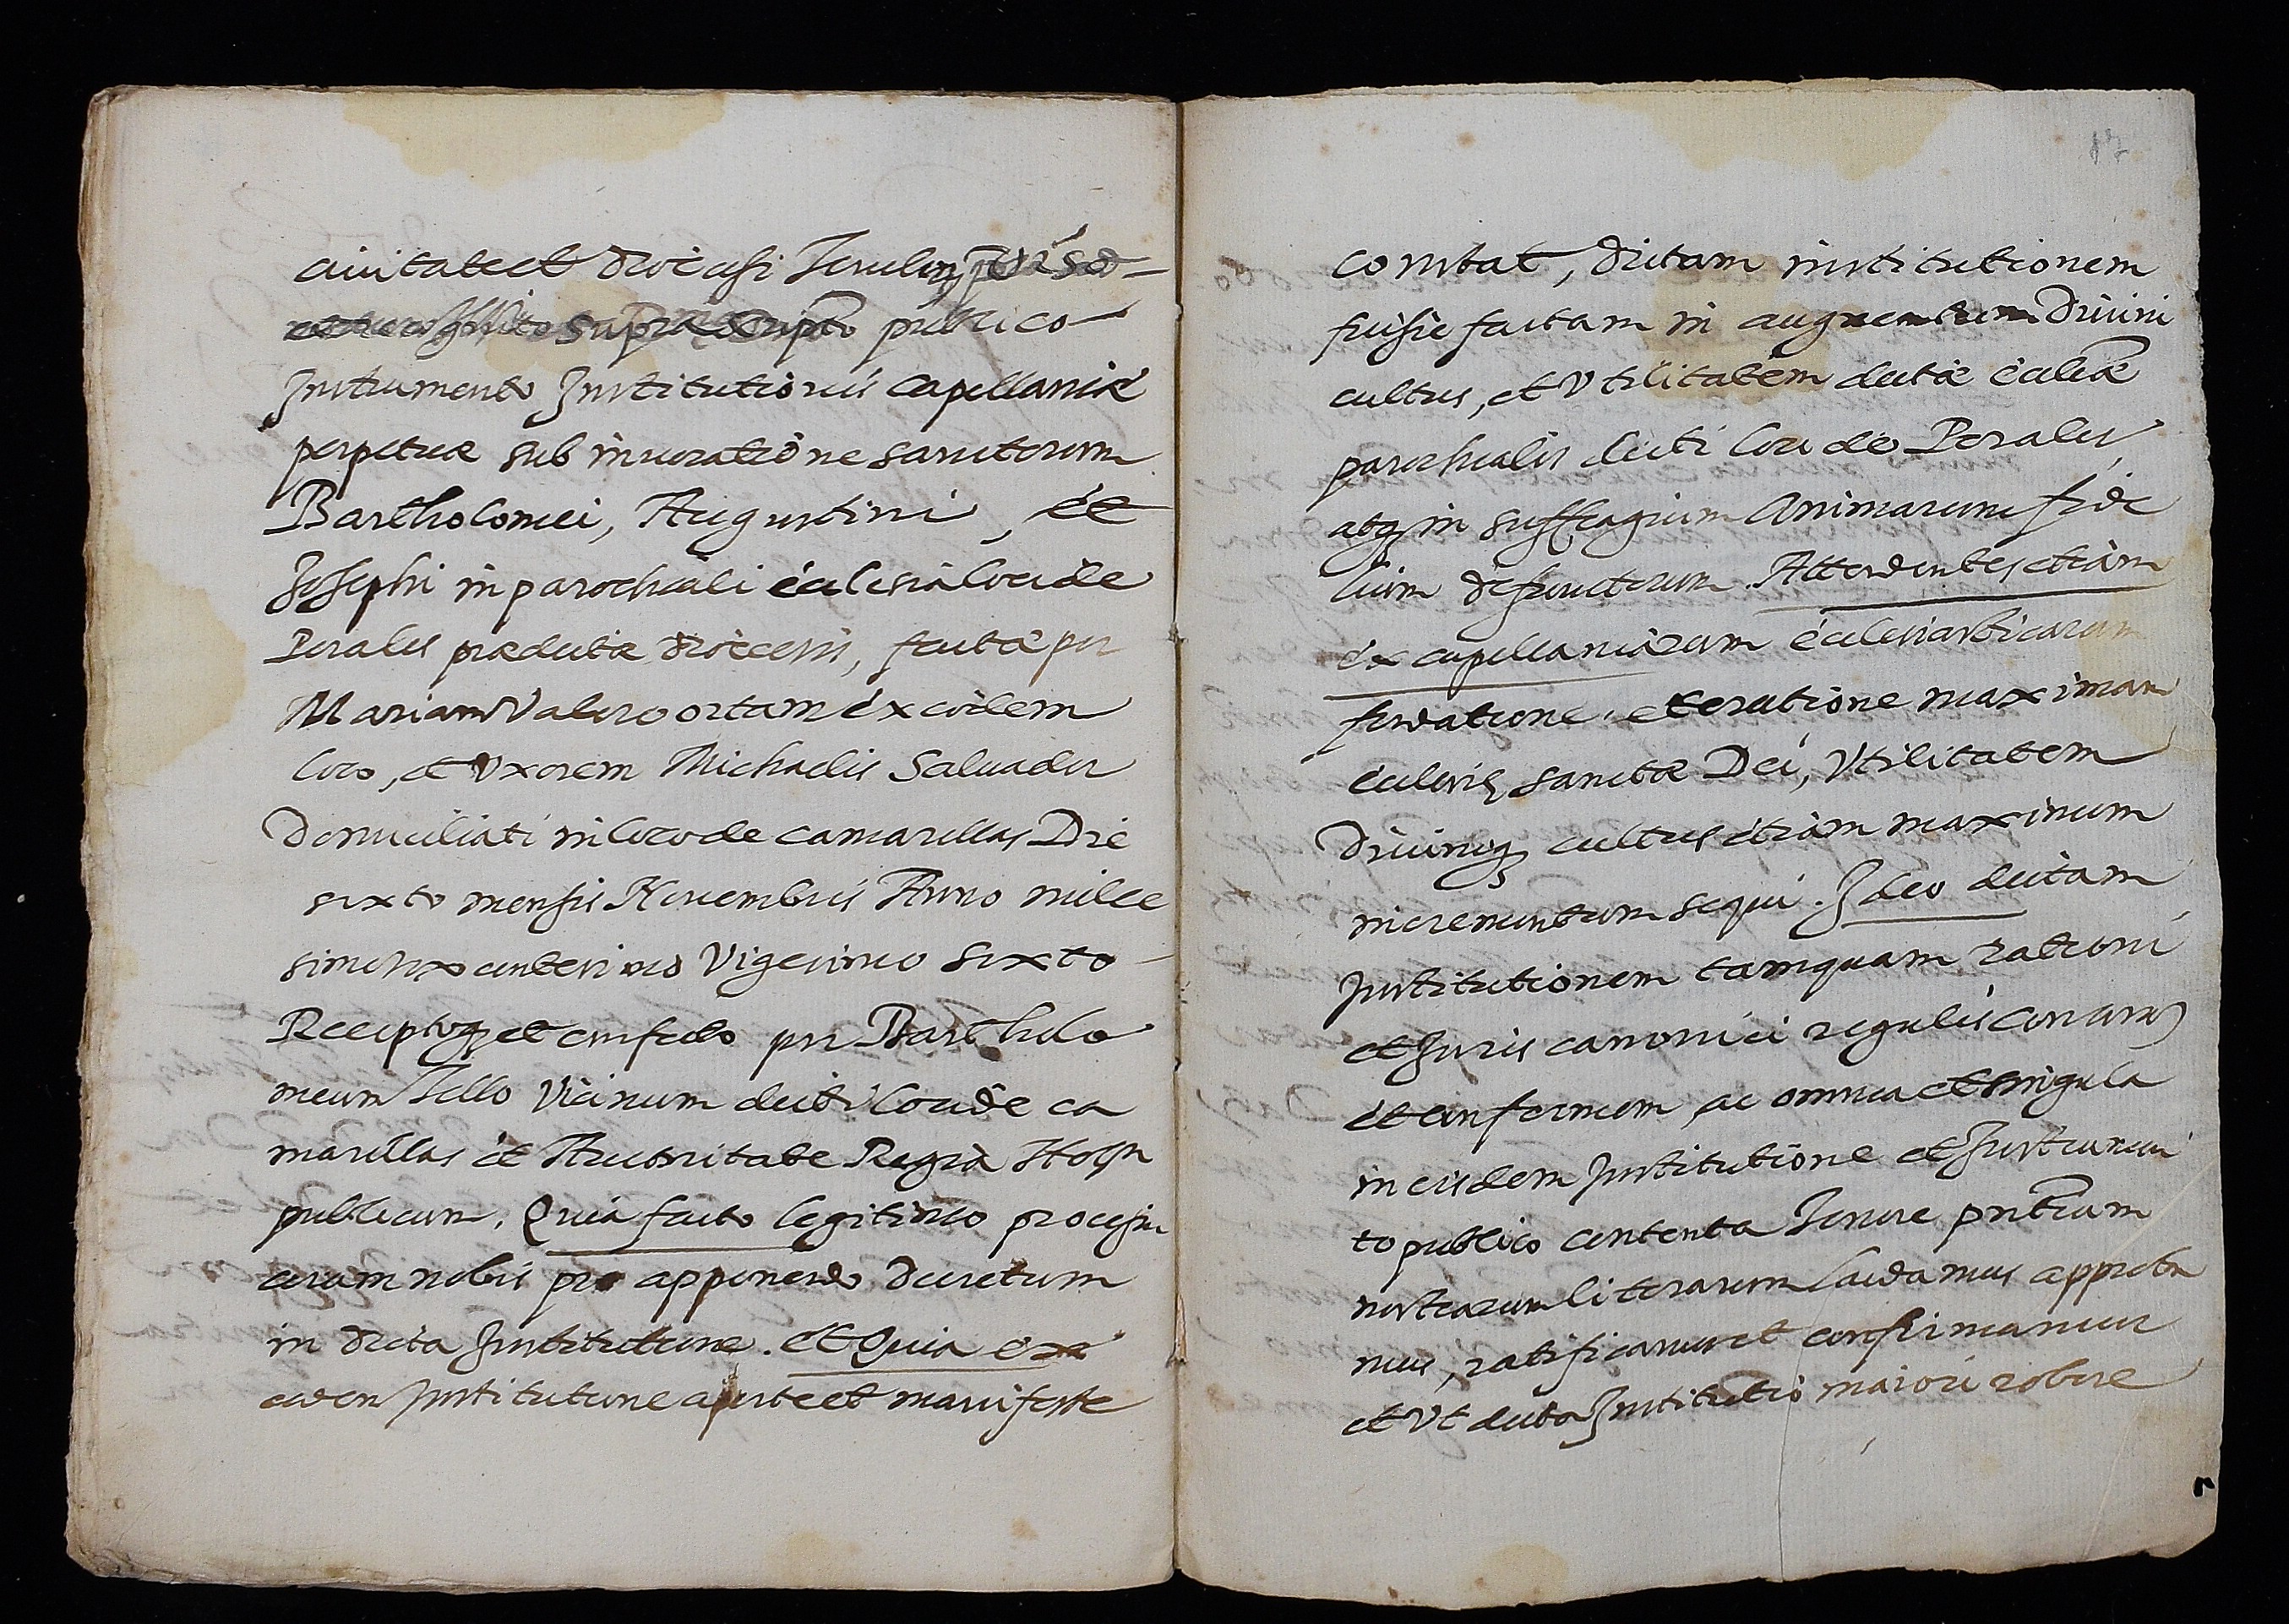 ciuitate et diocesi Terulen, viso
et recognito suprascripto publico
Instrumento Institutionis Capellaniæ
perpetuæ sub inuocatione sanctorum
Bartholomei, Augustini, et
Josephi in parochiali ecclesia loci de
Perales prædictæ diœcesis, factæ per
Mariam Valero ortam ex eodem
loco, et Vxorem Michaelis Saluador
Domiciliati in loco de camarillas Die
sexto mensis Nouembris Anno mille
simo sexcentesimo Vigesimo sexto
Receptoq et confecto per Bartholo
meum Tello Vicinum dicti loci de ca
marillas et Auctoritate Regia Nots
publicum. Quia facto legitimo processu
coram nobis pro apponendo decretum
in dicta Institutione. et Quia ex
eadem Institutione aperte et manifeste
17
constat, dictam institutionem
fuisse factam in augmentum Diuini
cultus, et Vtilitatem dictæ ecclæ
parochialis dicti loci de Perales,
atq in suffragium Animarum fide
lium defunctorum. Attendentes etiam
ex capellaniarum ecclesiasticarum
fundatione, et eractione maximam
ecclesię sanctæ Dei, Vtilitatem
Diuinoq cultus etiam maximum
incrementum sequi. Ideo dictam
Institutionem tamquam rationi
et Juris canonici regulis consonam
et conformem, ac omnia et singula
in eisdem Institutione et Instrumen
to publico contenta Tenore pntium
nostrarum literarum laudamus approba
mus, ratificamus et confirmamus
et Vt dicta Institutio maiori robore